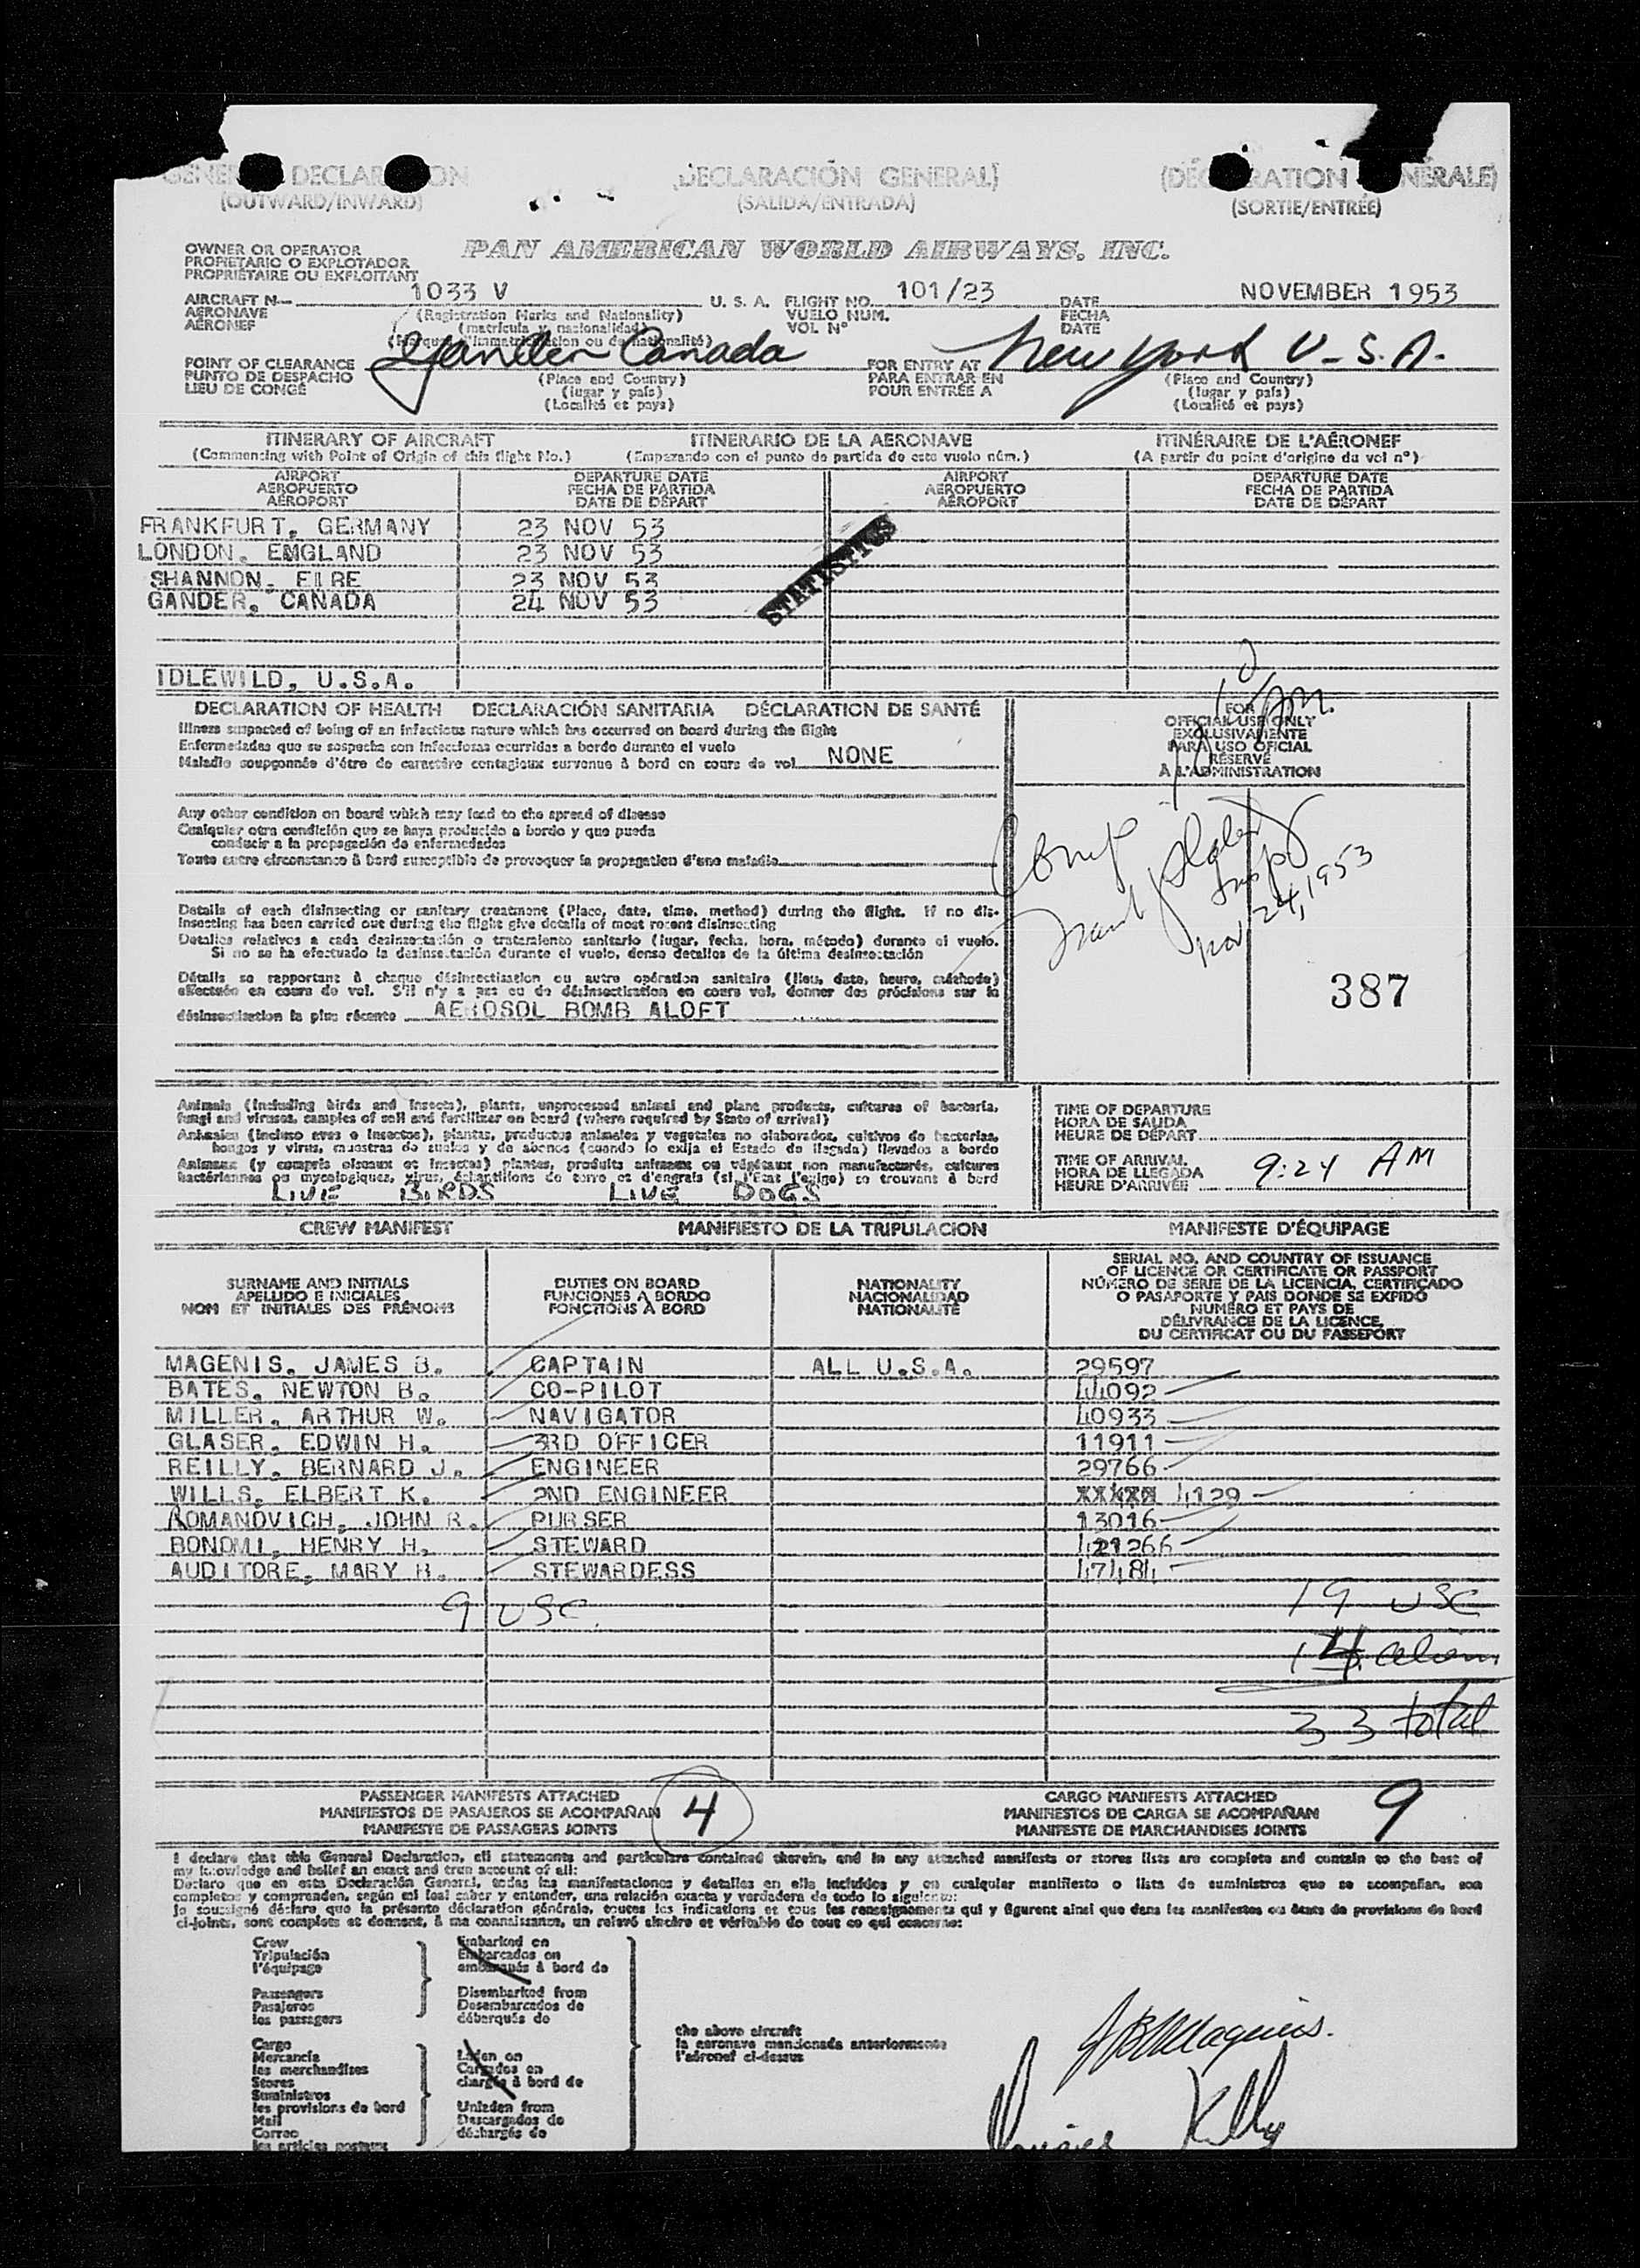 GENE DECLAR ON (DECLARACIÓN GENERAL) (DÉ RATION NÉRALE)
(OUTWARD/INWARD) (SALIDA/ENTRADA) (SORTIE/ENTRÉE)
OWNER OR OPERATOR PAN AMERICAN WORLD AIRWAYS, INC.
PROPIETARIO O EXPLOTADOR
PROPRIÉTAIRE OU EXPLOITANT
AIRCRAFT N— 1033 V U. S. A. FLIGHT NO. 101/23 DATE NOVEMBER 1953
AERONAVE (Registration Marks and Nationality) VUELO NUM. FECHA
AÉRONEF (matrícula y nacionalidad) VOL N° DATE
(Marques d'immatriculation ou de nationalité)
POINT OF CLEARANCE Gander Canada FOR ENTRY AT New York U.S.A.
PUNTO DE DESPACHO (Place and Country) PARA ENTRAR EN (Place and Country)
LIEU DE CONGÉ (lugar y país) POUR ENTRÉE A (lugar y país)
(Localité et pays) (Localité et pays)
ITINERARY OF AIRCRAFT ITINERARIO DE LA AERONAVE ITINÉRAIRE DE L'AÉRONEF
(Commencing with Point of Origin of this flight No.) (Empezando con el punto de partida de este vuelo núm.) (A partir du point d'origine du vol n°)
AIRPORT DEPARTURE DATE AIRPORT DEPARTURE DATE
AEROPUERTO FECHA DE PARTIDA AEROPUERTO FECHA DE PARTIDA
AÉROPORT DATE DE DÉPART AÉROPORT DATE DE DÉPART
FRANKFURT, GERMANY 23 NOV 53
LONDON, EMGLAND 23 NOV 53
SHANNON, EIRE 23 NOV 53
GANDER, CANADA 24 NOV 53
STATISTICS
IDLEWILD, U.S.A.
DECLARATION OF HEALTH DECLARACIÓN SANITARIA DÉCLARATION DE SANTÉ
Illness suspected of being of an infectious nature which has occurred on board during the flight
Enfermedades que se sospecha son infecciosas ocurridas a bordo durante el vuelo
Maladie soupçonnée d'être de caractère contagieux survenue à bord en cours de vol NONE
FOR
OFFICIAL USE ONLY
EXCLUSIVAMENTE
PARA USO OFICIAL
RÉSERVÉ
À L'ADMINISTRATION
Any other condition on board which may lead to the spread of disease
Cualquier otra condición que se haya producido a bordo y que pueda
conducir a la propagación de enfermedades
Toute autre circonstance à bord susceptible de provoquer la propagation d'une maladie
Nov 24, 1953
387
Details of each disinsecting or sanitary treatment (Place, date, time, method) during the flight. If no dis-
insecting has been carried out during the flight give details of most recent disinsecting
Detalles relativos a cada desinsectación o tratamiento sanitario (lugar, fecha, hora, método) durante el vuelo.
Si no se ha efectuado la desinsectación durante el vuelo, dense detalles de la última desinsectación
Détails se rapportant à chaque désinsectisation ou autre opération sanitaire (lieu, date, heure, méthode)
effectuée en cours de vol. S'il n'y a pas eu de désinsectisation en cours vol, donner des précisions sur la
désinsectisation la plus récente AEROSOL BOMB ALOFT
Animals (including birds and insects), plants, unprocessed animal and plant products, cultures of bacteria,
fungi and viruses, samples of soil and fertilizer on board (where required by State of arrival)
Animales (incluso aves e insectos), plantas, productos animales y vegetales no elaborados, cultivos de bacterias,
hongos y virus, muestras de suelos y de abonos (cuando lo exija el Estado de llegada) llevados a bordo
Animaux (y compris oiseaux et insectes) plantes, produits animaux ou végétaux non manufacturés, cultures
bactériennes ou mycologiques, virus, échantillons de terre et d'engrais (si l'État l'exige) se trouvant à bord
LIVE BIRDS LIVE DOGS
TIME OF DEPARTURE
HORA DE SALIDA
HEURE DE DÉPART
TIME OF ARRIVAL
HORA DE LLEGADA 9:24 AM
HEURE D'ARRIVÉE
CREW MANIFEST MANIFIESTO DE LA TRIPULACION MANIFESTE D'ÉQUIPAGE
SURNAME AND INITIALS DUTIES ON BOARD NATIONALITY SERIAL NO. AND COUNTRY OF ISSUANCE
APELLIDO E INICIALES FUNCIONES A BORDO NACIONALIDAD OF LICENCE OR CERTIFICATE OR PASSPORT
NOM ET INITIALES DES PRÉNOMS FONCTIONS À BORD NATIONALITÉ NÚMERO DE SERIE DE LA LICENCIA, CERTIFICADO
O PASAPORTE Y PAIS DONDE SE EXPIDÓ
NUMÉRO ET PAYS DE
DÉLIVRANCE DE LA LICENCE,
DU CERTIFICAT OU DU PASSEPORT
MAGENIS, JAMES B. CAPTAIN ALL U.S.A. 29597
BATES, NEWTON B. CO-PILOT 44092
MILLER, ARTHUR W. NAVIGATOR 40933
GLASER, EDWIN H. 3RD OFFICER 11911
REILLY, BERNARD J. ENGINEER 29766
WILLS, ELBERT K. 2ND ENGINEER 4129
ROMANOVICH, JOHN R. PURSER 13016
BONOMI, HENRY H. STEWARD
AUDITORE, MARY STEWARDESS 47484
9 USC. 19 USC
14 alien
33 total
PASSENGER MANIFESTS ATTACHED CARGO MANIFESTS ATTACHED
MANIFIESTOS DE PASAJEROS SE ACOMPAÑAN 4 MANIFIESTOS DE CARGA SE ACOMPAÑAN 9
MANIFESTE DE PASSAGERS JOINTS MANIFESTE DE MARCHANDISES JOINTS
I declare that this General Declaration, all statements and particulars contained therein, and in any attached manifests or stores lists are complete and contain to the best of
my knowledge and belief an exact and true account of all:
Declaro que en esta Declaración General, todas las manifestaciones y detalles en ella incluídos y en cualquier manifiesto o lista de suministros que se acompañan, son
completos y comprenden, según mi leal saber y entender, una relación exacta y verdadera de todo lo siguiente:
Je soussigné déclare que la présente déclaration générale, toutes les indications et tous les renseignements qui y figurent ainsi que dans les manifestes ou états de provisions de bord
ci-joints, sont complets et donnent, à ma connaissance, un relevé sincère et véritable de tout ce qui concerne:
Crew Embarked on
Tripulación Embarcados en
l'équipage embarqués à bord de
Passengers Disembarked from
Pasajeros Desembarcados de
les passagers débarqués de
the above aircraft
la aeronave mencionada anteriormente
l'aéronef ci-dessus
Cargo
Mercancía Laden on
les merchandises Cargados en
Stores chargés à bord de
Suministros
les provisions de bord Unladen from
Mail Descargados de
Correo déchargés de
les articles postaux
JBMagenis.
Kelly